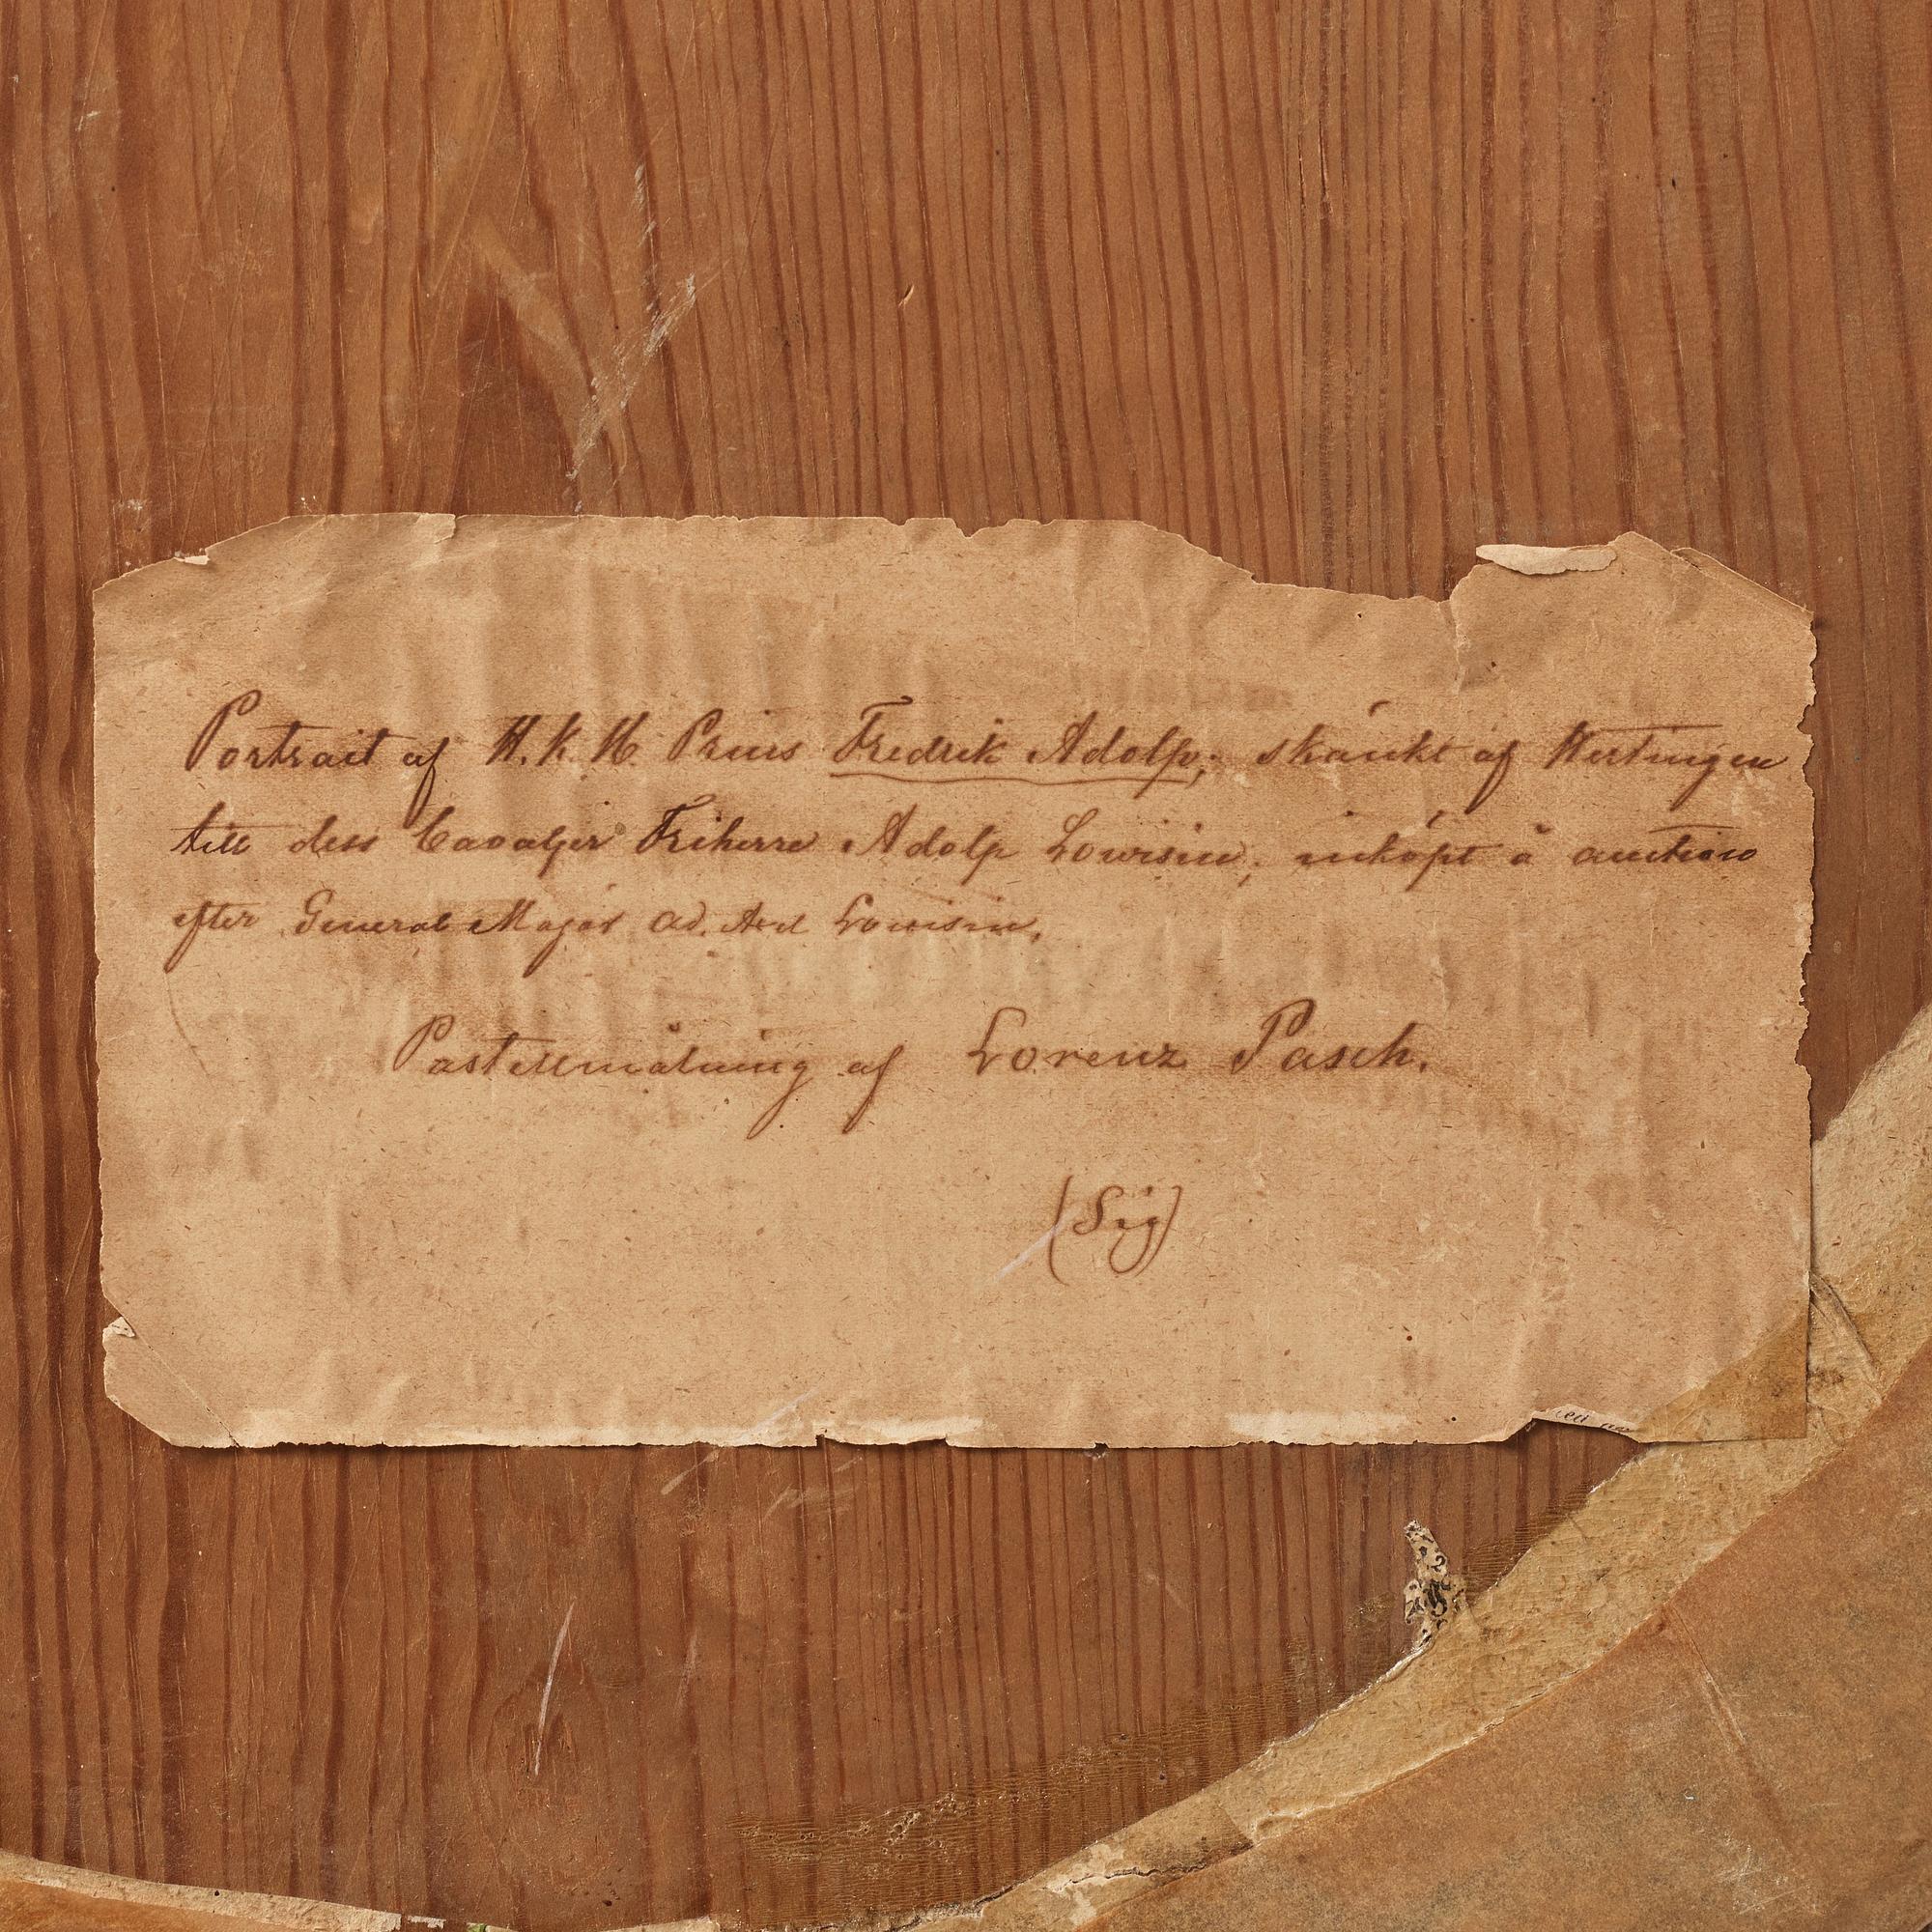 Portrait af H.K.H. Prins Fredrik Adolp; skänkt af Hertingen
till dess Cavaljer Friherre Adolp Lowisin; inköpt å auction
efter General Major Ad. Lowisin.
Pastellmålning af Lorenz Pasch.
(Sig)